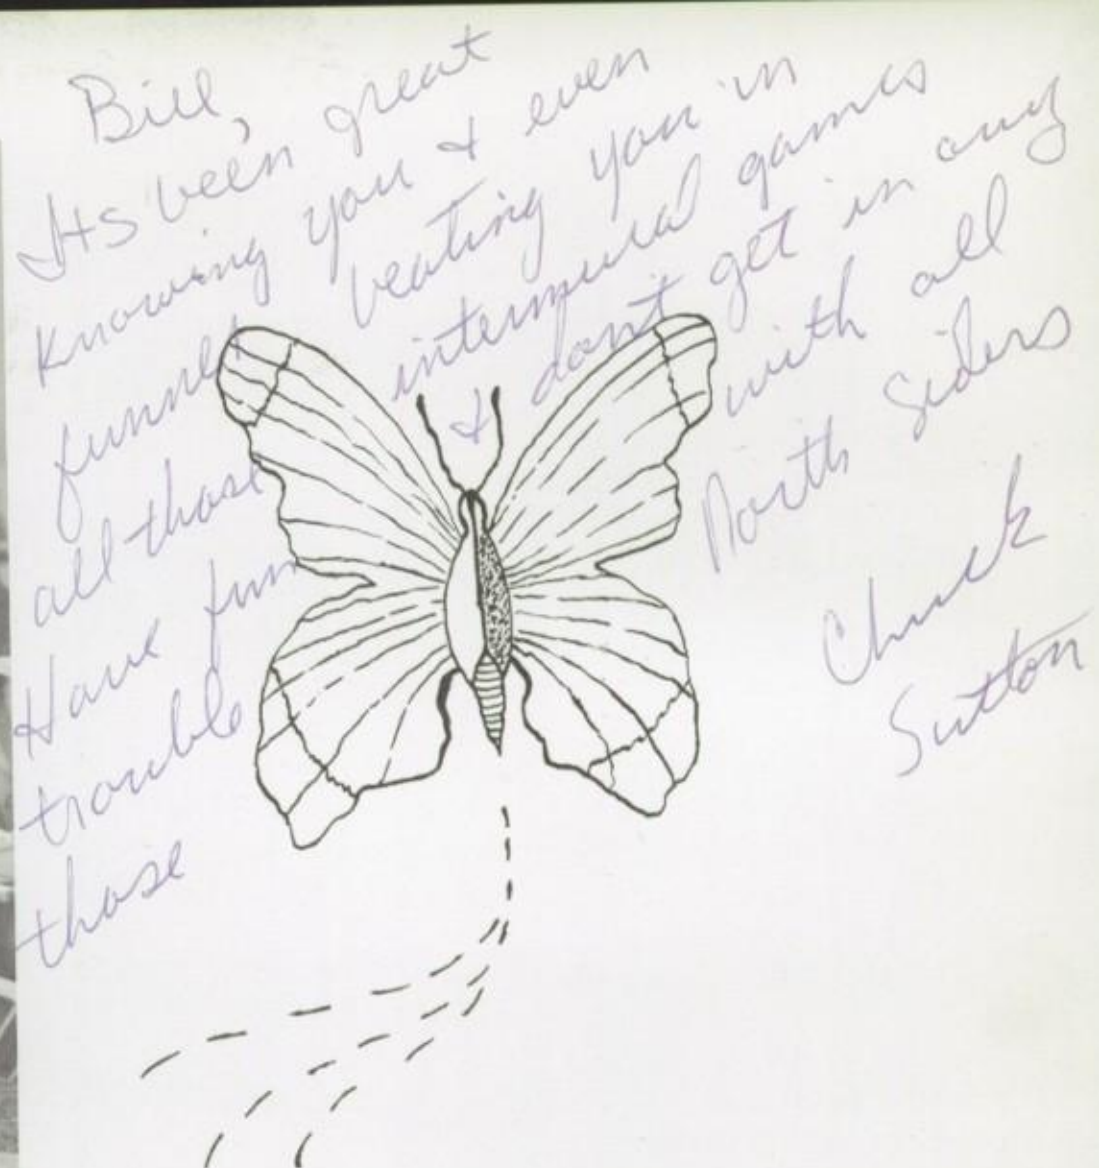 Bill,
Its been great
knowing you & even
funner beating you in
all those intermural games
Have fun & dont get in any
trouble with all
those North Siders
Chuck
Sutton